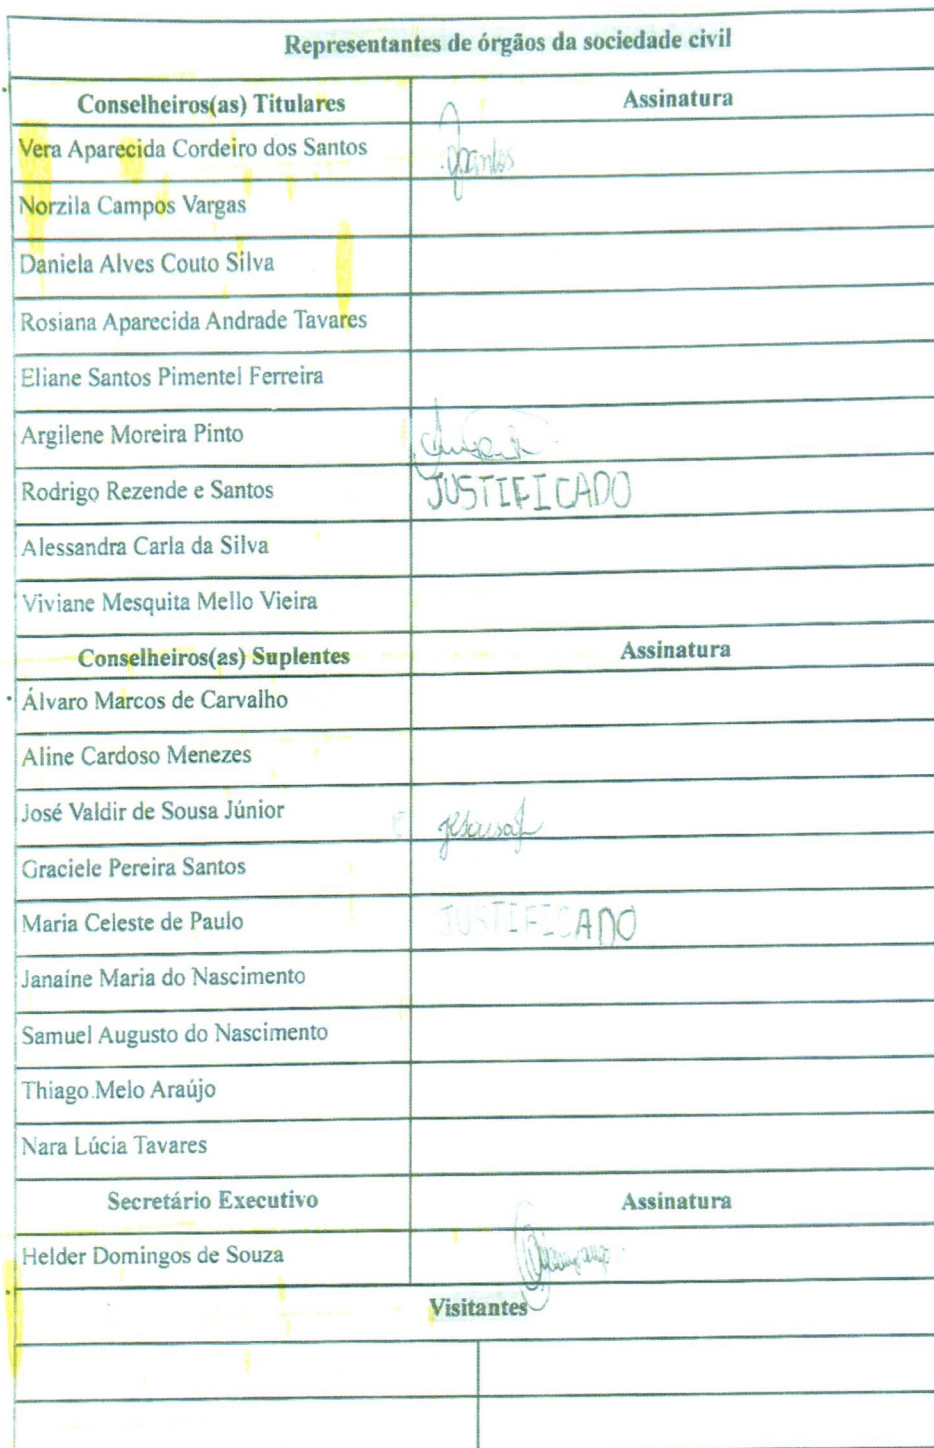 Representantes de órgãos da sociedade civil
Conselheiros(as) Titulares Assinatura
Vera Aparecida Cordeiro dos Santos
Norzila Campos Vargas
Daniela Alves Couto Silva
Rosiana Aparecida Andrade Tavares
Eliane Santos Pimentel Ferreira
Argilene Moreira Pinto
Rodrigo Rezende e Santos JUSTIFICADO
Alessandra Carla da Silva
Viviane Mesquita Mello Vieira
Conselheiros(as) Suplentes Assinatura
Álvaro Marcos de Carvalho
Aline Cardoso Menezes
José Valdir de Sousa Júnior
Graciele Pereira Santos
Maria Celeste de Paulo JUSTIFICADO
Janaíne Maria do Nascimento
Samuel Augusto do Nascimento
Thiago Melo Araújo
Nara Lúcia Tavares
Secretário Executivo Assinatura
Helder Domingos de Souza
Visitantes